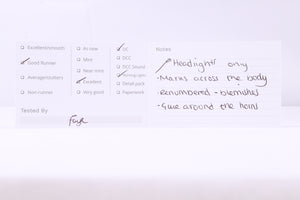 Excellent/smooth
Good Runner
Average/stutters
Non-runner
As new
Mint
Near mint
Excellent
Very good
DC
DCC
DCC Sound
Detail pack
Paperwork
Tested By
Notes
Headlight only
-Marks across the body
-Renumbered - blemishes
-Glue around the horns